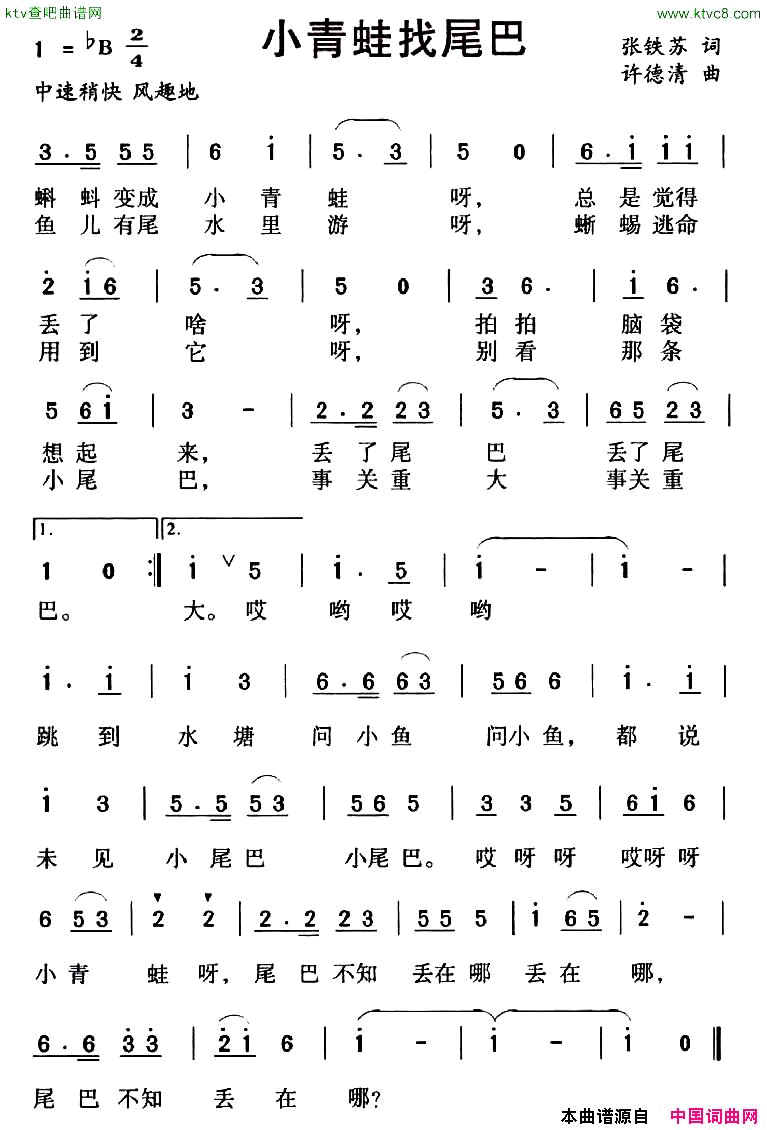 ktv查吧曲谱网
www.ktvc8.com
小青蛙找尾巴
1 = ♭B 2/4
张铁苏 词
许德清 曲
中速稍快 风趣地
3. 5 5 5 | 6 i | 5. 3 | 5 0 | 6. i i i |
蝌蚪变成 小青 蛙 呀, 总是觉得
鱼儿有尾 水里 游 呀, 蜥蜴逃命
2 i 6 | 5. 3 | 5 0 | 3 6. | i 6. |
丢了 啥 呀, 拍拍 脑袋
用到 它 呀, 别看 那条
5 6 i | 3 - | 2. 2 2 3 | 5. 3 | 6 5 2 3 |
想起 来, 丢了尾 巴 丢了尾
小尾 巴, 事关重 大 事关重
1. 2.
1 0 :| i ∨ 5 | i. 5 | i - | i - |
巴。 大。哎 哟哎 哟
i. i | i 3 | 6. 6 6 3 | 5 6 6 | i. i |
跳到 水塘 问小鱼 问小鱼, 都说
i 3 | 5. 5 5 3 | 5 6 5 | 3 3 5 | 6 i 6 |
未见 小尾巴 小尾巴。 哎呀呀 哎呀呀
6 5 3 | 2 2 | 2. 2 2 3 | 5 5 5 | i 6 5 | 2 - |
小青 蛙呀, 尾巴不知 丢在哪 丢在 哪,
6. 6 3 3 | 2 i 6 | i - | i - | i 0 ‖
尾巴不知 丢在 哪?
本曲谱源自 中国词曲网